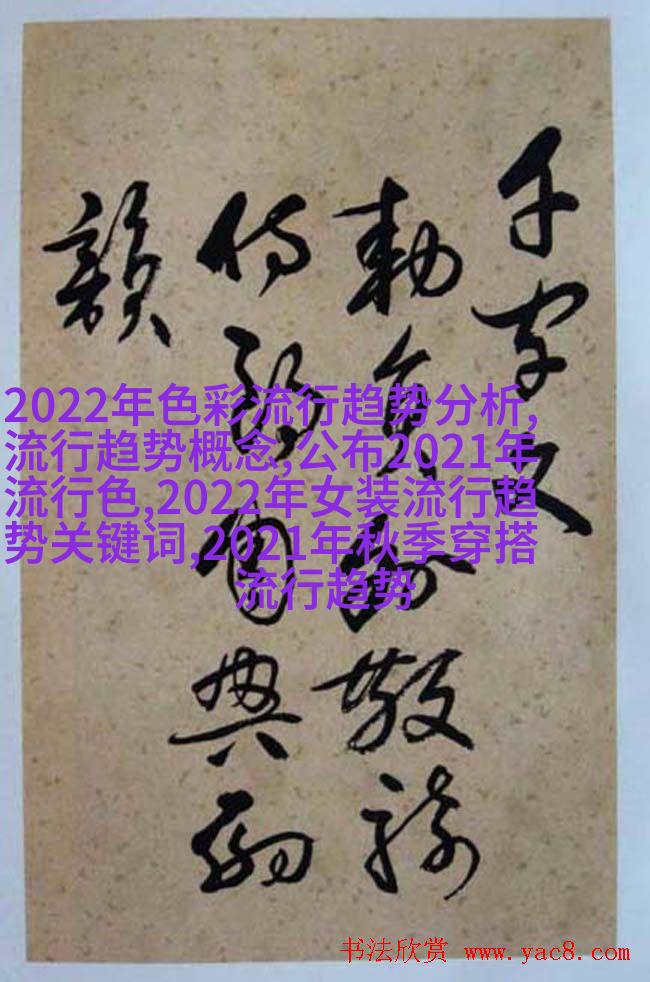 千字文
勅員外散騎
侍郎周興嗣
韻
2022年色彩流行趋势分析,
流行趋势概念,公布2021年
流行色,2022年女装流行趋
势关键词,2021年秋季穿搭
流行趋势
书法欣赏 www.yac8.com